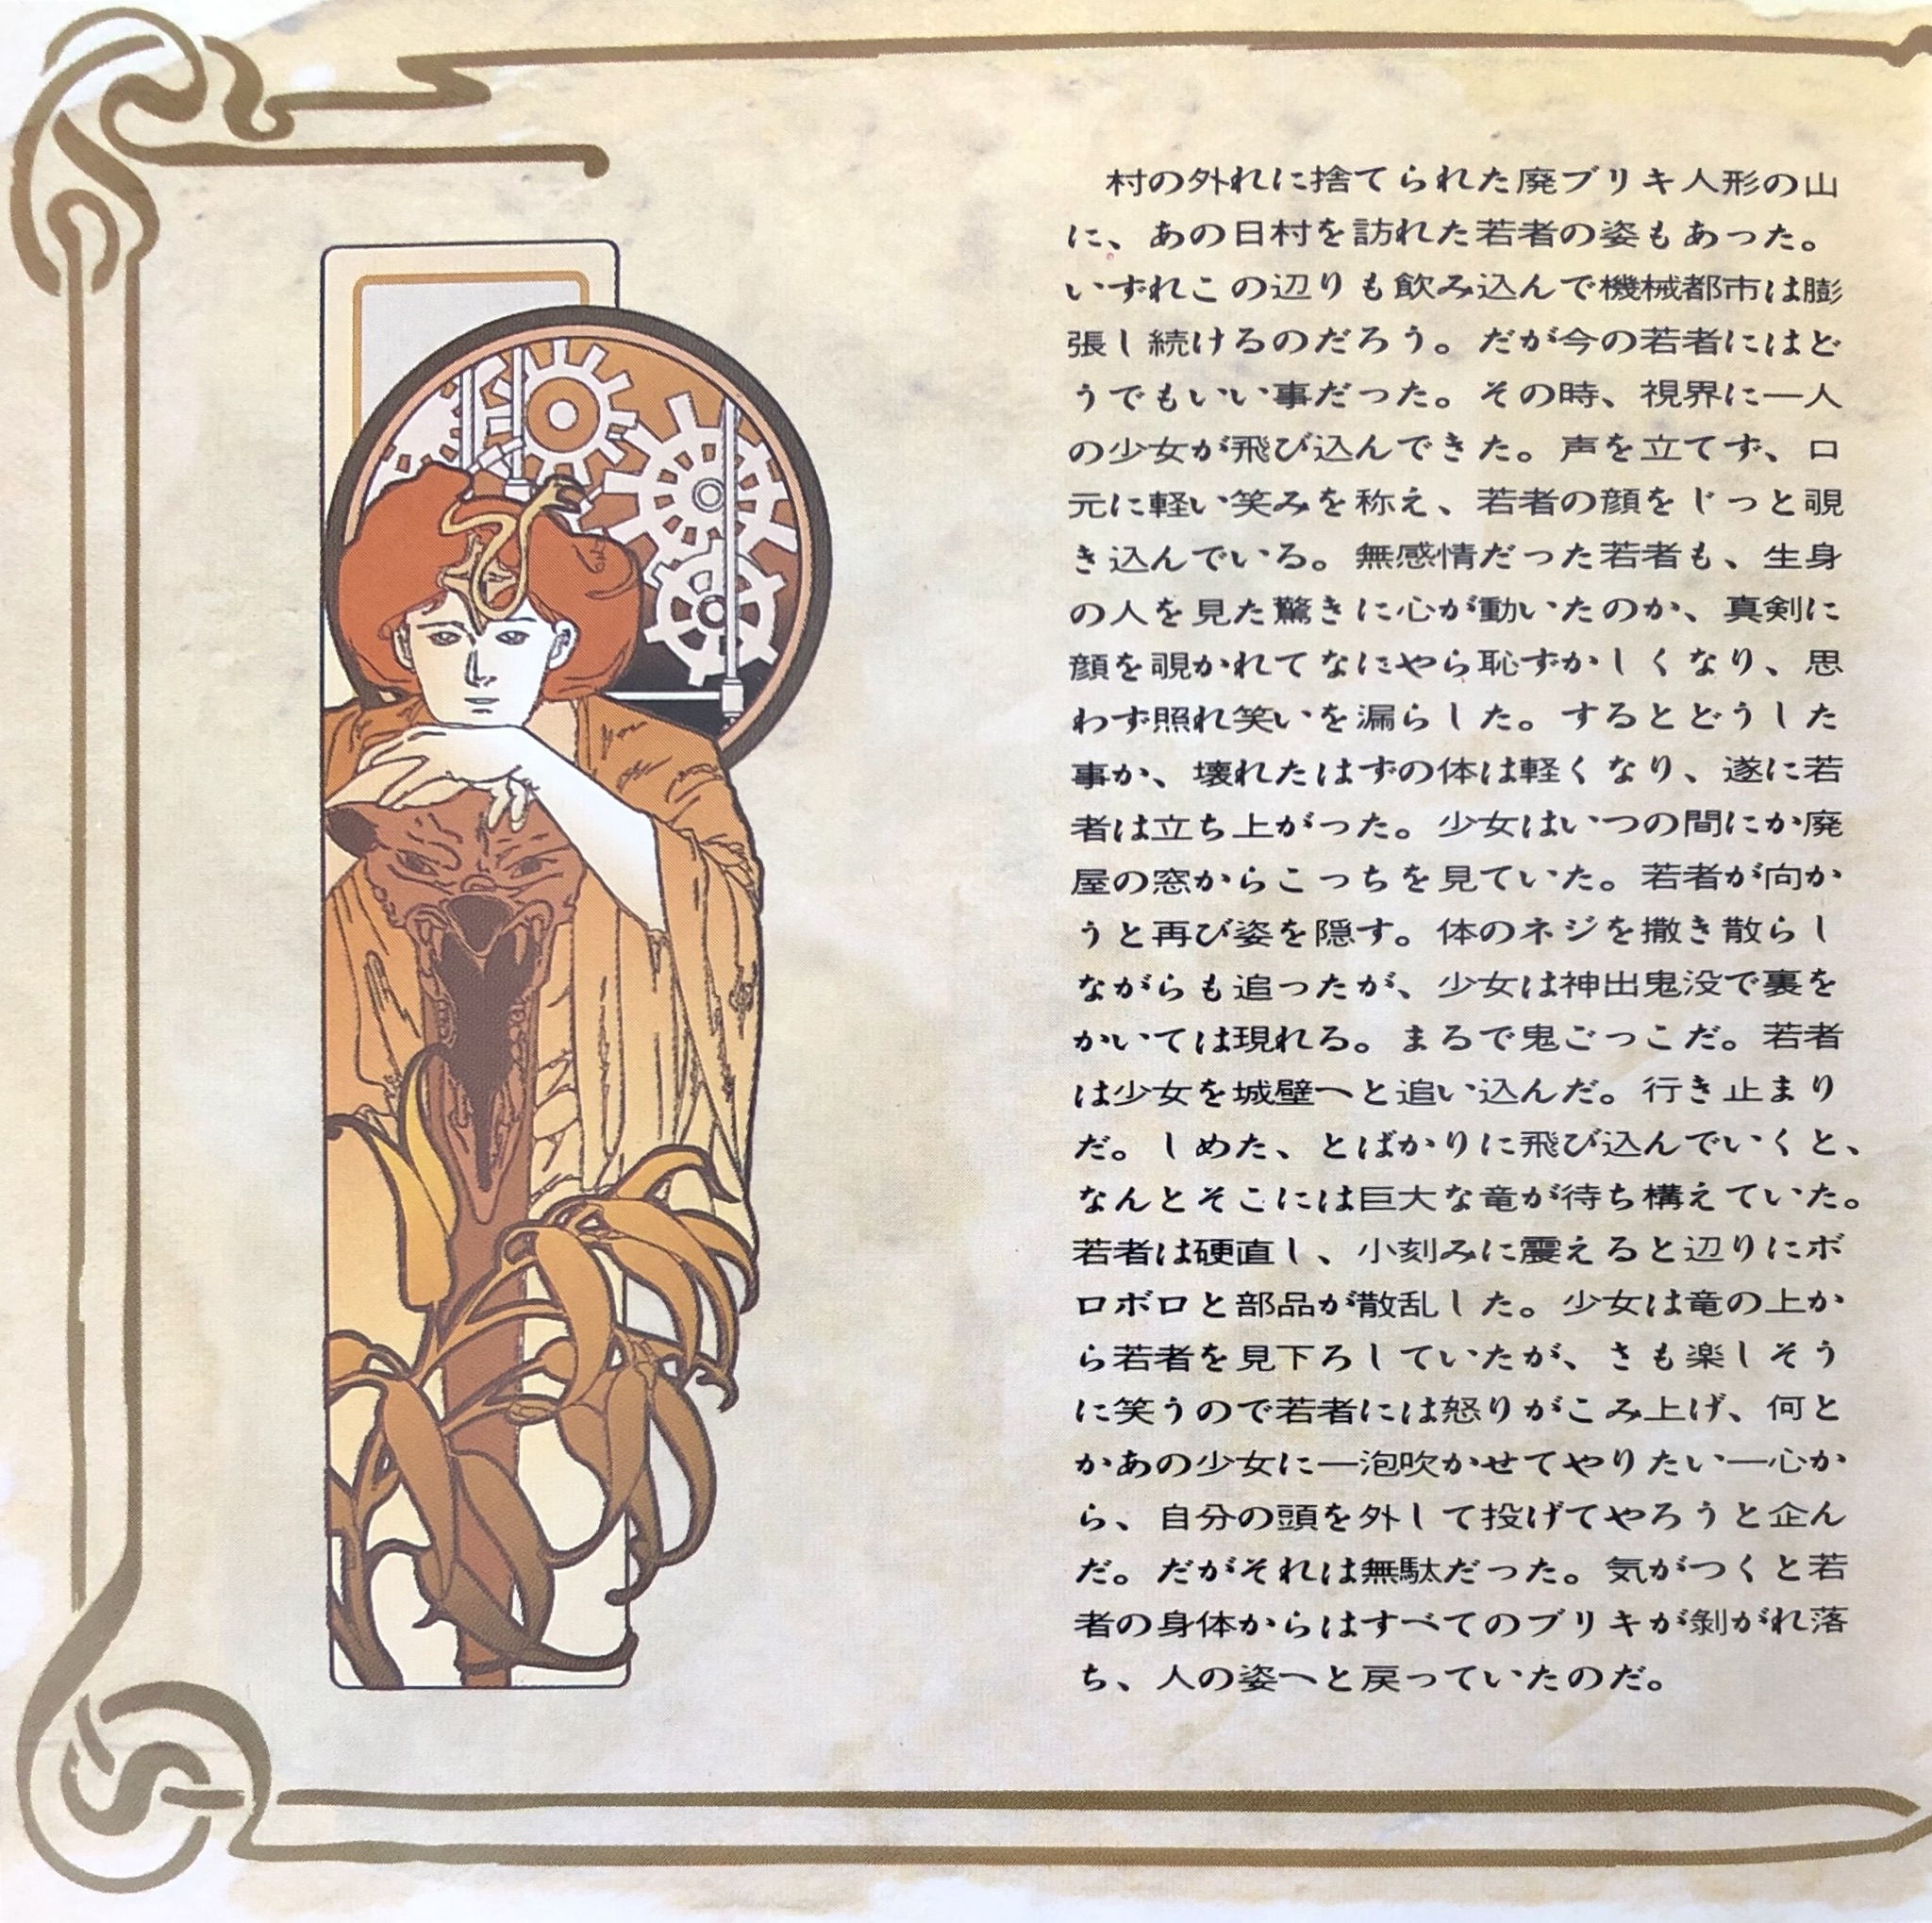 村の外れに捨てられた廃ブリキ人形の山
に、あの日村を訪れた若者の姿もあった。
いずれこの辺りも飲み込んで機械都市は膨
張し続けるのだろう。だが今の若者にはど
うでもいい事だった。その時、視界に一人
の少女が飛び込んできた。声を立てず、口
元に軽い笑みを称え、若者の顔をじっと覗
き込んでいる。無感情だった若者も、生身
の人を見た驚きに心が動いたのか、真剣に
顔を覗かれてなにやら恥ずかしくなり、思
わず照れ笑いを漏らした。するとどうした
事か、壊れたはずの体は軽くなり、遂に若
者は立ち上がった。少女はいつの間にか廃
屋の窓からこっちを見ていた。若者が向か
うと再び姿を隠す。体のネジを撒き散らし
ながらも追ったが、少女は神出鬼没で裏を
かいては現れる。まるで鬼ごっこだ。若者
は少女を城壁へと追い込んだ。行き止まり
だ。しめた、とばかりに飛び込んでいくと、
なんとそこには巨大な竜が待ち構えていた。
若者は硬直し、小刻みに震えると辺りにボ
ロボロと部品が散乱した。少女は竜の上か
ら若者を見下ろしていたが、さも楽しそう
に笑うので若者には怒りがこみ上げ、何と
かあの少女に一泡吹かせてやりたい一心か
ら、自分の頭を外して投げてやろうと企ん
だ。だがそれは無駄だった。気がつくと若
者の身体からはすべてのブリキが剝がれ落
ち、人の姿へと戻っていたのだ。